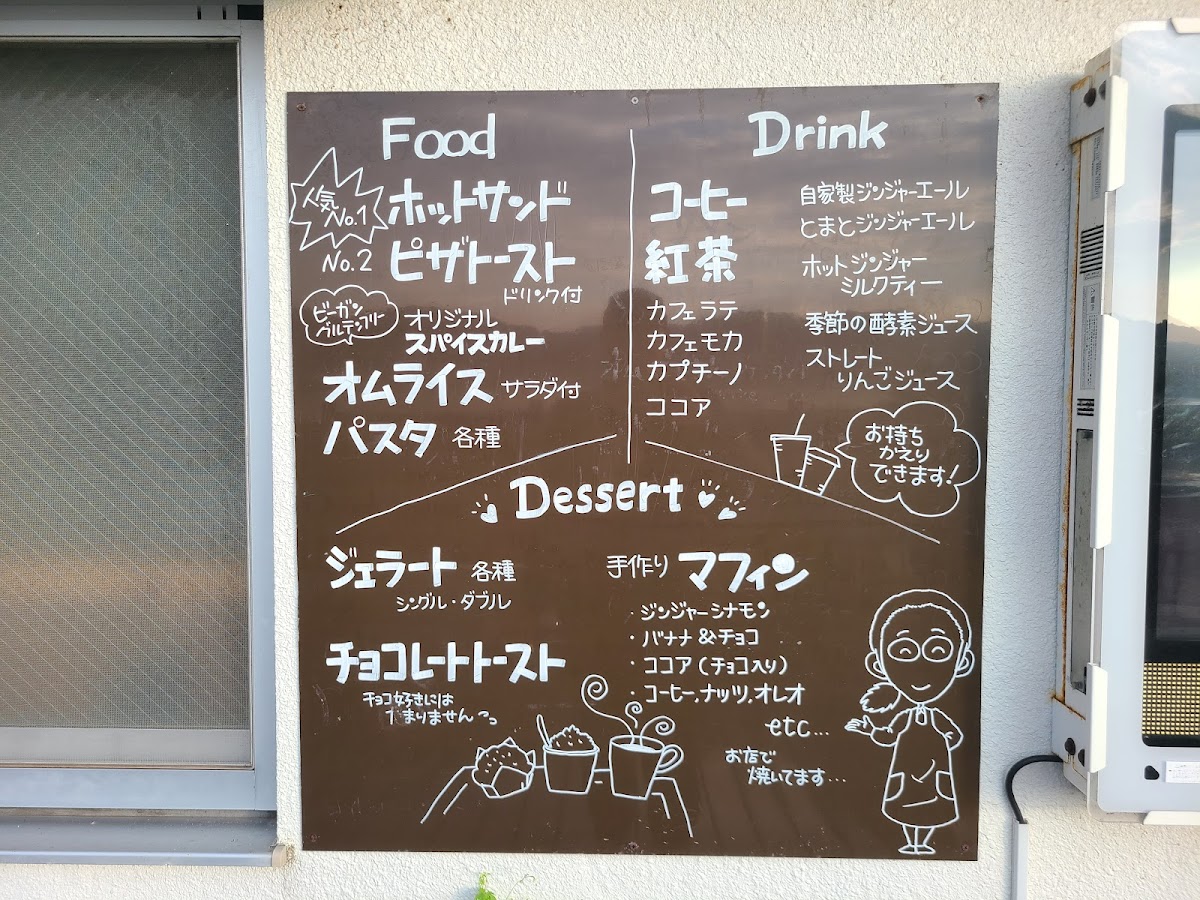 Food
人気
No.1
ホットサンド
No.2
ピザトースト
ドリンク付
ビーガン
グルテンフリー
オリジナル
スパイスカレー
オムライス サラダ付
パスタ 各種
Drink
コーヒー
紅茶
カフェラテ
カフェモカ
カプチーノ
ココア
自家製ジンジャーエール
とまとジンジャーエール
ホットジンジャー
ミルクティー
季節の酵素ジュース
ストレート
りんごジュース
お持ち
かえり
できます!
Dessert
ジェラート 各種
シングル・ダブル
チョコレートトースト
チョコ好きには
たまりません
手作り マフィン
・ジンジャーシナモン
・バナナ&チョコ
・ココア(チョコ入り)
・コーヒー,ナッツ,オレオ
etc...
お店で
焼いてます...